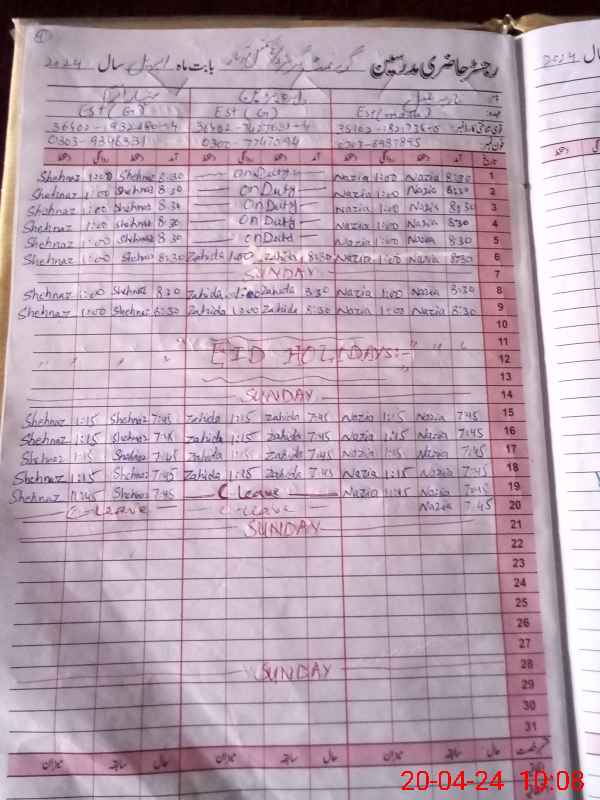 رجسٹر حاضری مدرسین گورنمنٹ گرلز بابت ماہ اپریل سال 2024
Est (G) Est (G) Est
0303-9348531 0302-7247094
تاریخ آمد دستخط روانگی دستخط آمد دستخط روانگی دستخط آمد دستخط روانگی دستخط
Shehnaz 1:00 Shehnaz 8:30 onDuty Nazia 1:00 Nazia 8:30 1
Shehnaz 1:00 Shehnaz 8:30 onDuty Nazia 1:00 Nazia 8:30 2
Shehnaz 1:00 Shehnaz 8:30 onDuty Nazia 1:00 Nazia 8:30 3
Shehnaz 1:00 Shehnaz 8:30 onDuty Nazia 1:00 Nazia 8:30 4
Shehnaz 1:00 Shehnaz 8:30 onDuty Nazia 1:00 Nazia 8:30 5
Shehnaz 1:00 Shehnaz 8:30 Zahida 1:00 Zahida 8:30 Nazia 1:00 Nazia 8:30 6
SUNDAY 7
Shehnaz 1:00 Shehnaz 8:30 Zahida 1:00 Zahida 8:30 Nazia 1:00 Nazia 8:30 8
Shehnaz 1:00 Shehnaz 8:30 Zahida 1:00 Zahida 8:30 Nazia 1:00 Nazia 8:30 9
10
11
EID HOLIDAYS:- 12
13
SUNDAY 14
Shehnaz 1:15 Shehnaz 7:45 Zahida 1:15 Zahida 7:45 Nazia 1:15 Nazia 7:45 15
Shehnaz 1:15 Shehnaz 7:45 Zahida 1:15 Zahida 7:45 Nazia 1:15 Nazia 7:45 16
Shehnaz 1:15 Shehnaz 7:45 Zahida 1:15 Zahida 7:45 Nazia 1:15 Nazia 7:45 17
Shehnaz 1:15 Shehnaz 7:45 Zahida 1:15 Zahida 7:45 Nazia 1:15 Nazia 7:45 18
Shehnaz Shehnaz 7:45 C-leave Nazia 1:15 Nazia 7:45 19
C-leave C-leave Nazia 7:45 20
SUNDAY 21
22
23
24
25
26
27
SUNDAY 28
29
30
31
حال سابقہ میزان حال سابقہ میزان حال سابقہ میزان
سال 2024
20-04-24 10:08